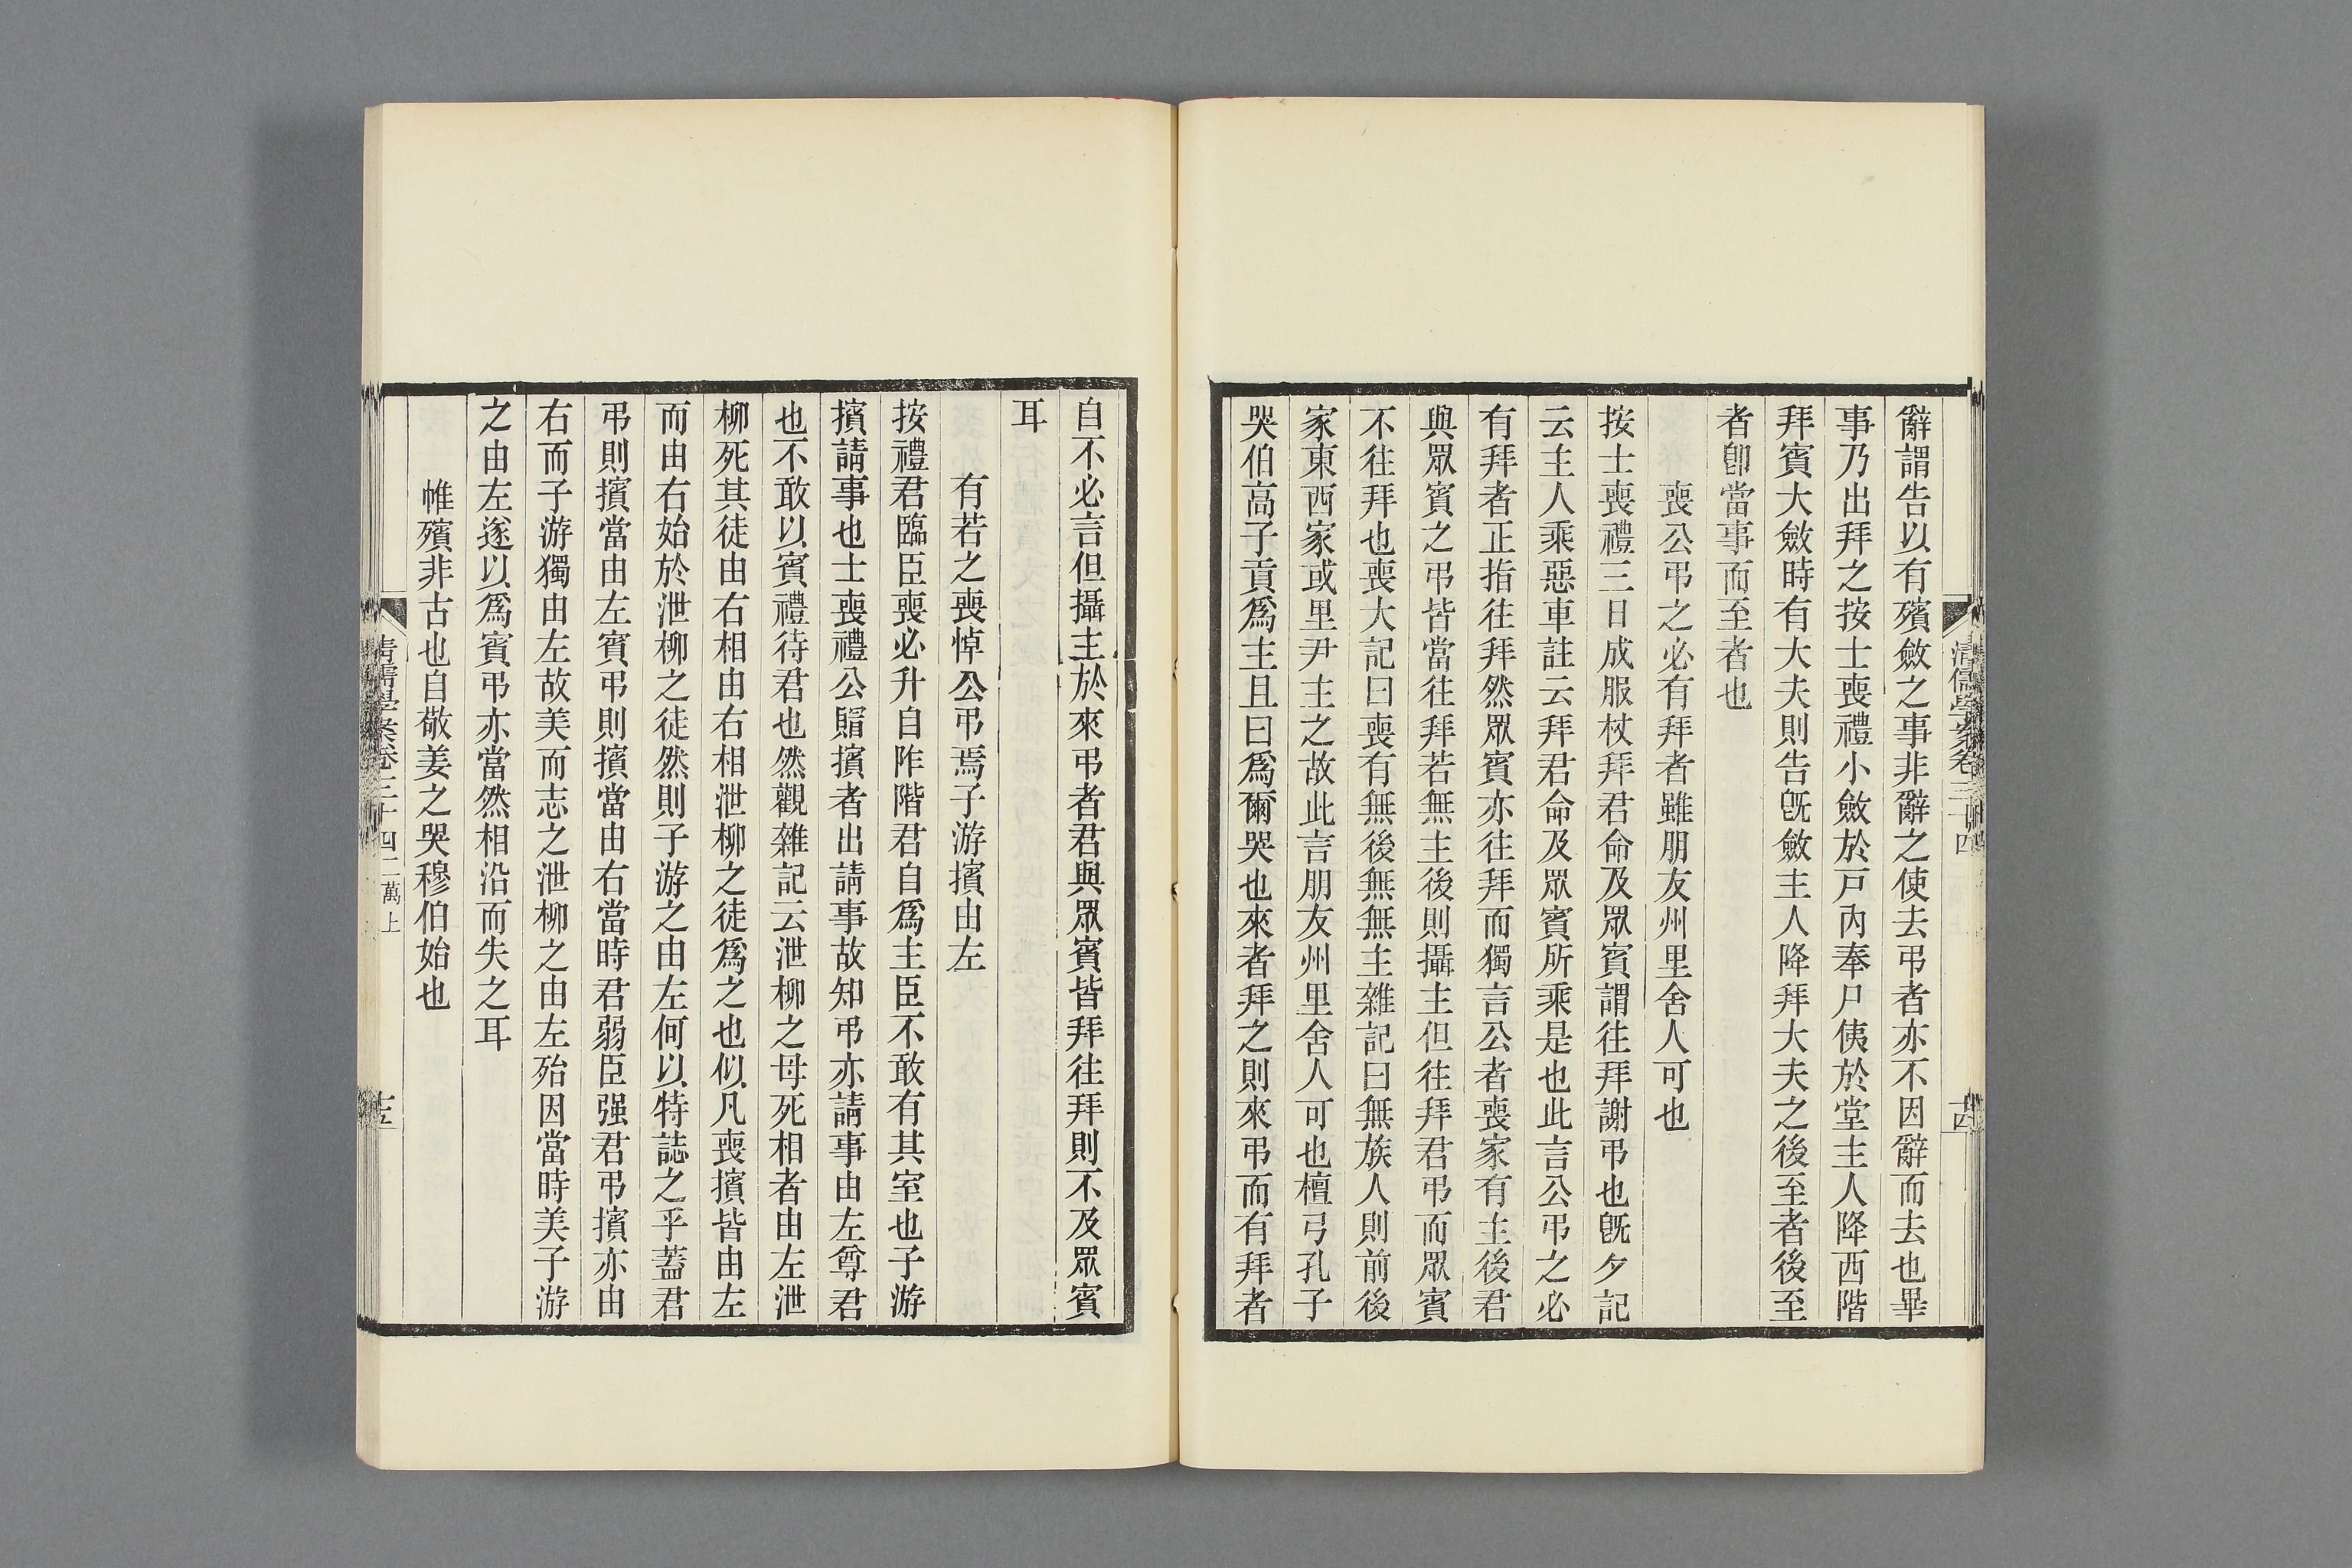 辭謂告以有殯斂之事非辭之使去弔者亦不因辭而去也畢
事乃出拜之按士喪禮小斂於戸內奉尸侇於堂主人降西階
拜賓大斂時有大夫則告旣斂主人降拜大夫之後至者後至
者卽當事而至者也
喪公弔之必有拜者雖朋友州里舍人可也
按士喪禮三日成服杖拜君命及眾賓謂往拜謝弔也旣夕記
云主人乘惡車註云拜君命及眾賓所乘是也此言公弔之必
有拜者正指往拜然眾賓亦往拜而獨言公者喪家有主後君
與眾賓之弔皆當往拜若無主後則攝主但往拜君弔而眾賓
不往拜也喪大記曰喪有無後無無主雜記曰無族人則前後
家東西家或里尹主之故此言朋友州里舍人可也檀弓孔子
哭伯高子貢爲主且曰爲爾哭也來者拜之則來弔而有拜者
清儒學案卷二十四
十四
自不必言但攝主於來弔者君與眾賓皆拜往拜則不及眾賓
耳
有若之喪悼公弔焉子游擯由左
按禮君臨臣喪必升自阼階君自爲主臣不敢有其室也子游
擯請事也士喪禮公賵擯者出請事故知弔亦請事由左尊君
也不敢以賓禮待君也然觀雜記云泄柳之母死相者由左泄
柳死其徒由右相由右相泄柳之徒爲之也似凡喪擯皆由左
而由右始於泄柳之徒然則子游之由左何以特誌之乎蓋君
弔則擯當由左賓弔則擯當由右當時君弱臣强君弔擯亦由
右而子游獨由左故美而志之泄柳之由左殆因當時美子游
之由左遂以爲賓弔亦當然相沿而失之耳
帷殯非古也自敬姜之哭穆伯始也
清儒學案卷二十四 二萬上
十五